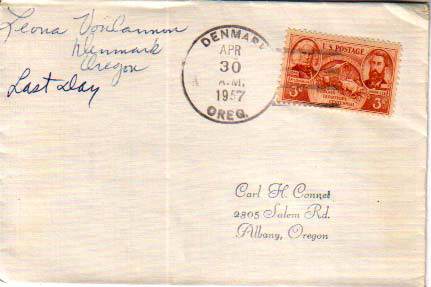 Leona VonCannon
Denmark
Oregon
Last Day
DENMARK
APR
30
A.M.
1957
OREG.
U.S. POSTAGE
3¢ 3¢
Carl H. Connet
2805 Salem Rd.
Albany, Oregon